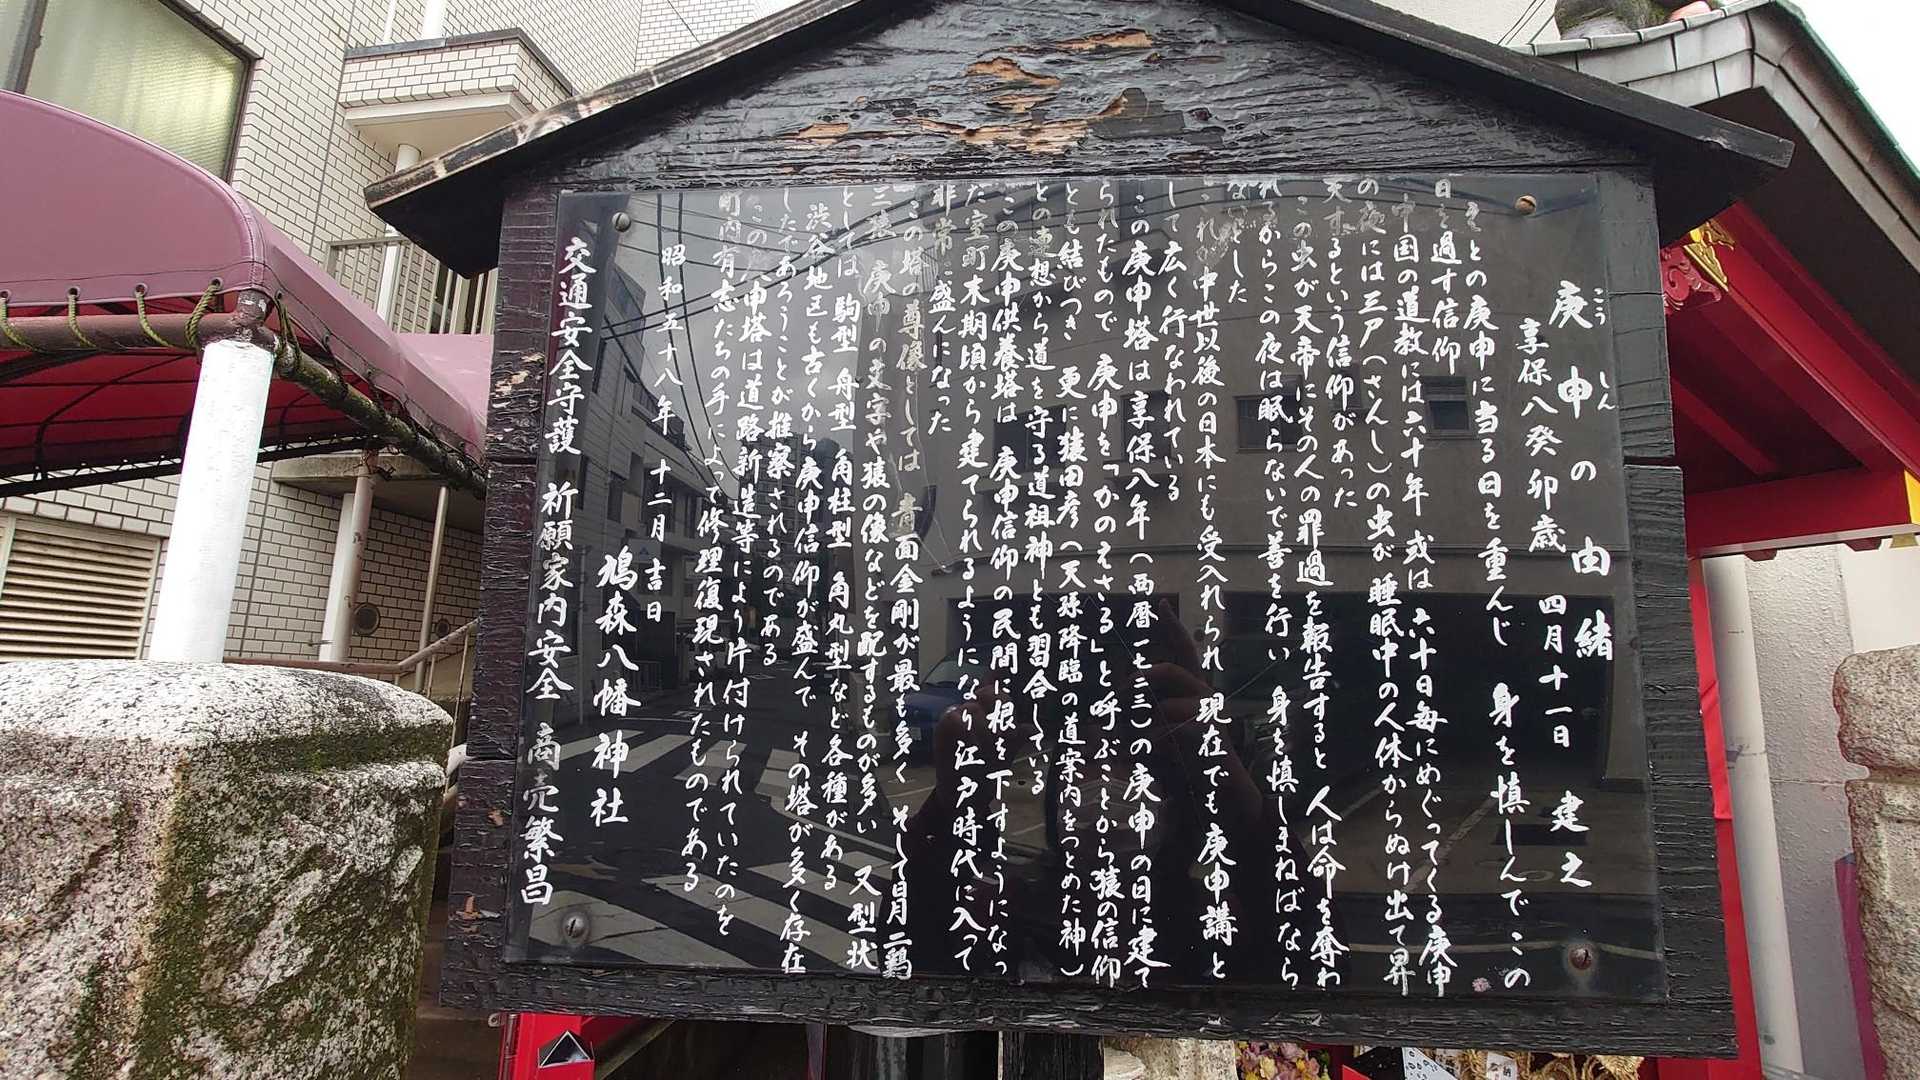 庚申の由緒
こうしん
享保八癸卯歳 四月十一日 建之
えとの庚申に当る日を重んじ 身を慎しんでこの
日を過す信仰
中国の道教には六十年 或は 六十日毎にめぐってくる庚申
の夜には三尸(さんし)の虫が睡眠中の人体からぬけ出て昇
天するという信仰があった
この虫が天帝にその人の罪過を報告すると 人は命を奪わ
れるからこの夜は眠らないで善を行い 身を慎しまねばなら
ないとした
これが 中世以後の日本にも受入れられ 現在でも庚申講と
して広く行なわれている
この庚申塔は享保八年(西暦一七二三)の庚申の日に建て
られたもので 庚申を「かのえさる」と呼ぶことから猿の信仰
とも結びつき 更に猿田彦(天孫降臨の道案内をつとめた神)
との連想から道を守る道祖神とも習合している
この庚申供養塔は 庚申信仰の民間に根を下すようになっ
た室町末期頃から建てられるようになり江戸時代に入って
非常に盛んになった
この塔の尊像としては 青面金剛が最も多く そして日月二鶏
三猿 庚申の文字や猿の像などを配するものが多い 又型状
としては 駒型 舟型 角柱型 角丸型など各種がある
渋谷地区も古くから庚申信仰が盛んで その塔が多く存在
したであろうことが推察されるのである
この 申塔は道路新造等により片付けられていたのを
町内有志たちの手によって修理復現されたものである
昭和五十八年 十二月吉日
鳩森八幡神社
交通安全守護 祈願家内安全 商売繁昌